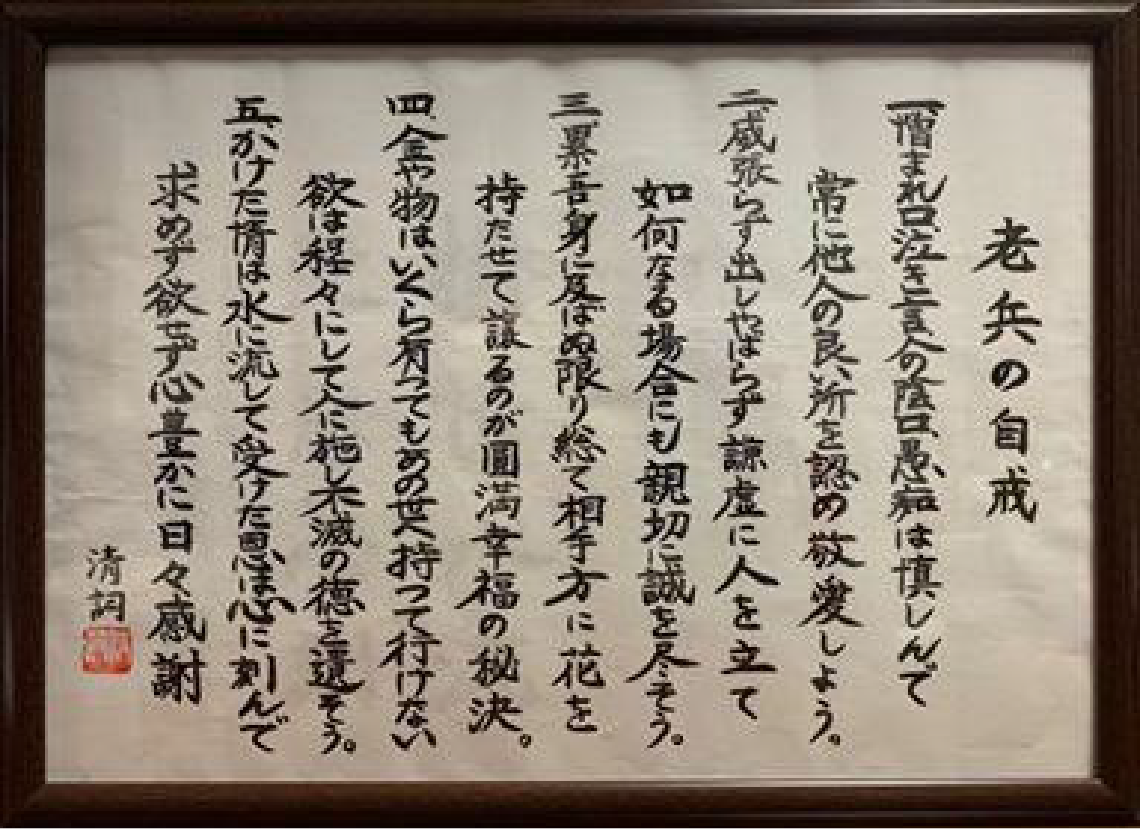 老兵の自戒
一、憎まれ口泣き言人の陰口愚痴は慎しんで
常に他人の良い所を認め敬愛しよう。
二、威張らず出しゃばらず謙虚に人を立て
如何なる場合にも親切に誠を尽そう。
三、累吾身に及ばぬ限り総て相手方に花を
持たせて譲るのが圓満幸福の秘決。
四、金や物はいくら有ってもあの世へ持って行けない
欲は程々にして人に施し不滅の徳を遺そう。
五、かけた情は水に流して受けた恩は心に刻んで
求めず欲せず心豊かに日々感謝
清詞